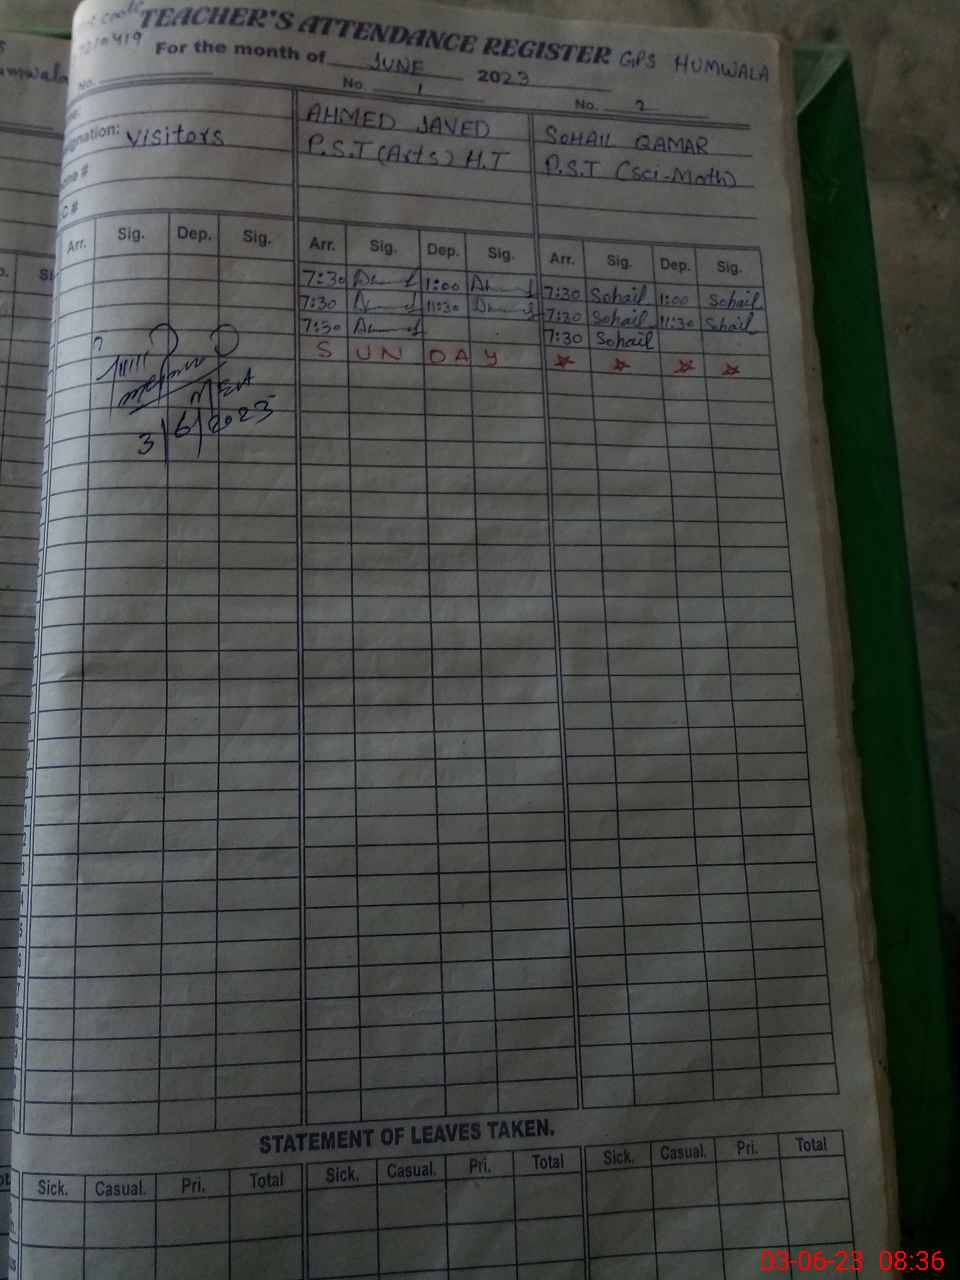 TEACHER'S ATTENDANCE REGISTER GPS HUMWALA
For the month of JUNE 2023
No. No. 1 No. 2
AHMED JAVED SOHAIL QAMAR
Visitors P.S.T (Arts) H.T P.S.T (Sci-Math)
Arr. Sig. Dep. Sig. Arr. Sig. Dep. Sig. Arr. Sig. Dep. Sig.
7:30 1:00 7:30 Sohail 1:00 Sohail
7:30 11:30 7:30 Sohail 11:30 Sohail
7:30 7:30 Sohail
SUNDAY
MEA
3/6/2023
STATEMENT OF LEAVES TAKEN.
Sick. Casual. Pri. Total Sick. Casual. Pri. Total Sick. Casual. Pri. Total
03-06-23 08:36